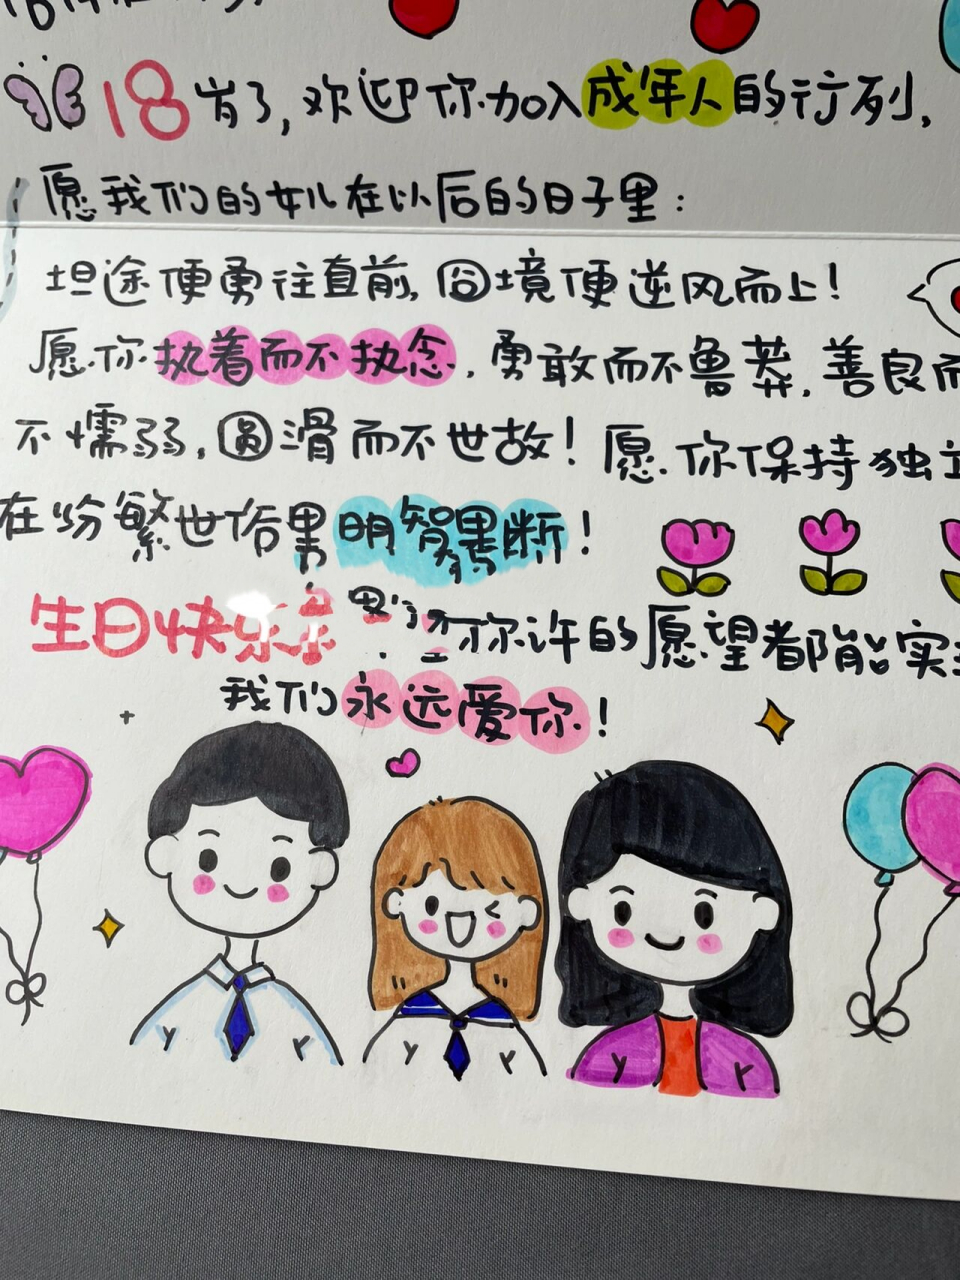 18岁了，欢迎你加入成年人的行列，
愿我们的女儿在以后的日子里：
坦途便勇往直前，囧境便逆风而上！
愿你执着而不执念，勇敢而不鲁莽，善良而
不懦弱，圆滑而不世故！愿你保持独立
在纷繁世俗里明智果断！
生日快乐 你许的愿望都能实
我们永远爱你！